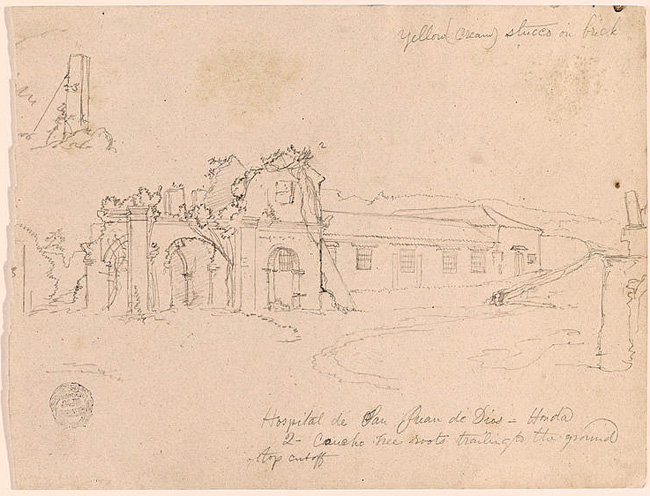 Yellow (cream) stucco on brick
2
Hospital de San Juan de Dios - Honda
2 - Caucho tree roots trailing to the ground
- top cut off